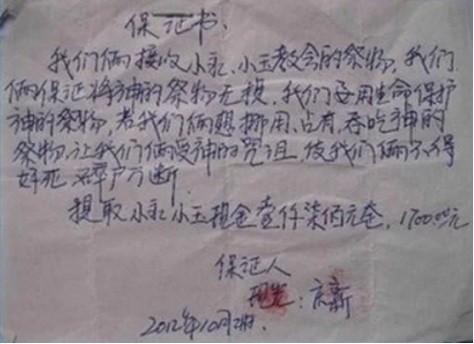 保证书、
我们俩接收小永、小玉教会的祭物,我们
俩保证将神的祭物无损,我们要用生命保护
神的祭物,若我们俩想挪用、占有、吞吃神的
祭物,让我们俩受神的咒诅,使我们俩不得
好死
提取小永小玉现金壹仟柒佰元全,1700.00元
保证人
:庆新
2012年10月2日.